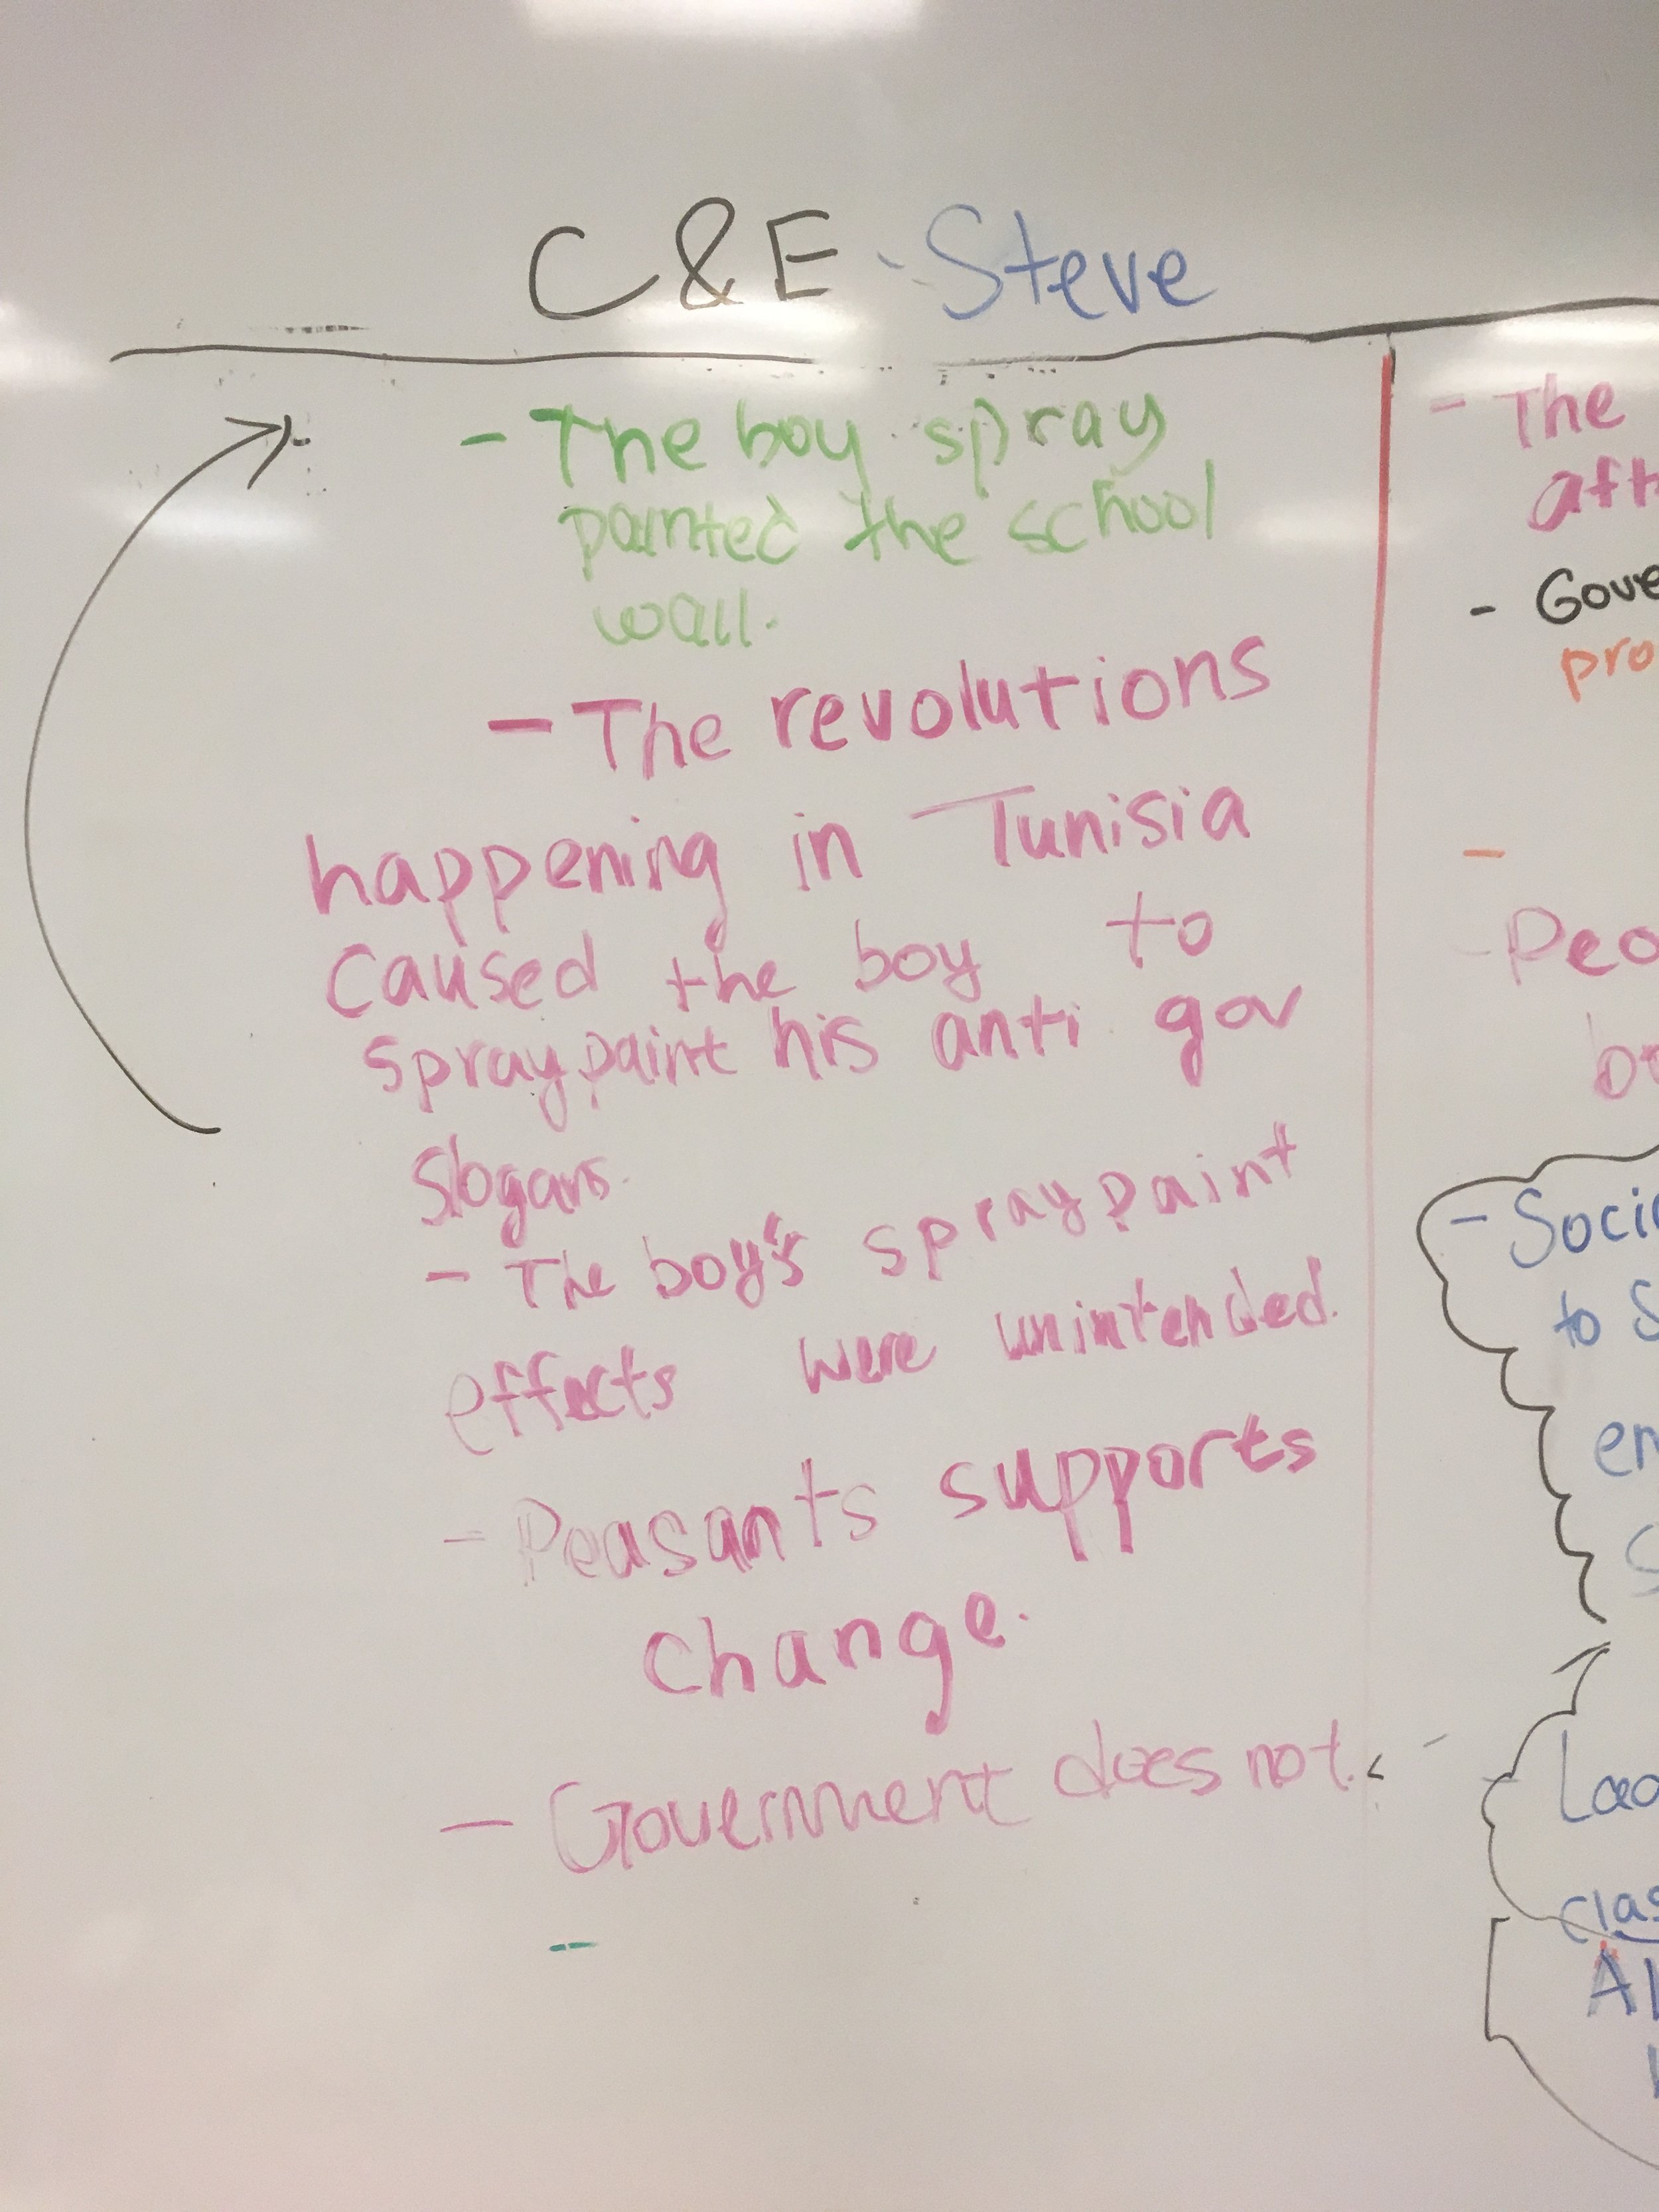 C&E - Steve
- The boy spray
painted the school
wall.
- The revolutions
happening in Tunisia
caused the boy to
spray paint his anti gov
slogans.
- The boy's spray paint
effects were unintended.
- Peasants supports
change.
- Government does not.
- The
- Gove
pro
-
- Peo
- Soci
to S
en
clas